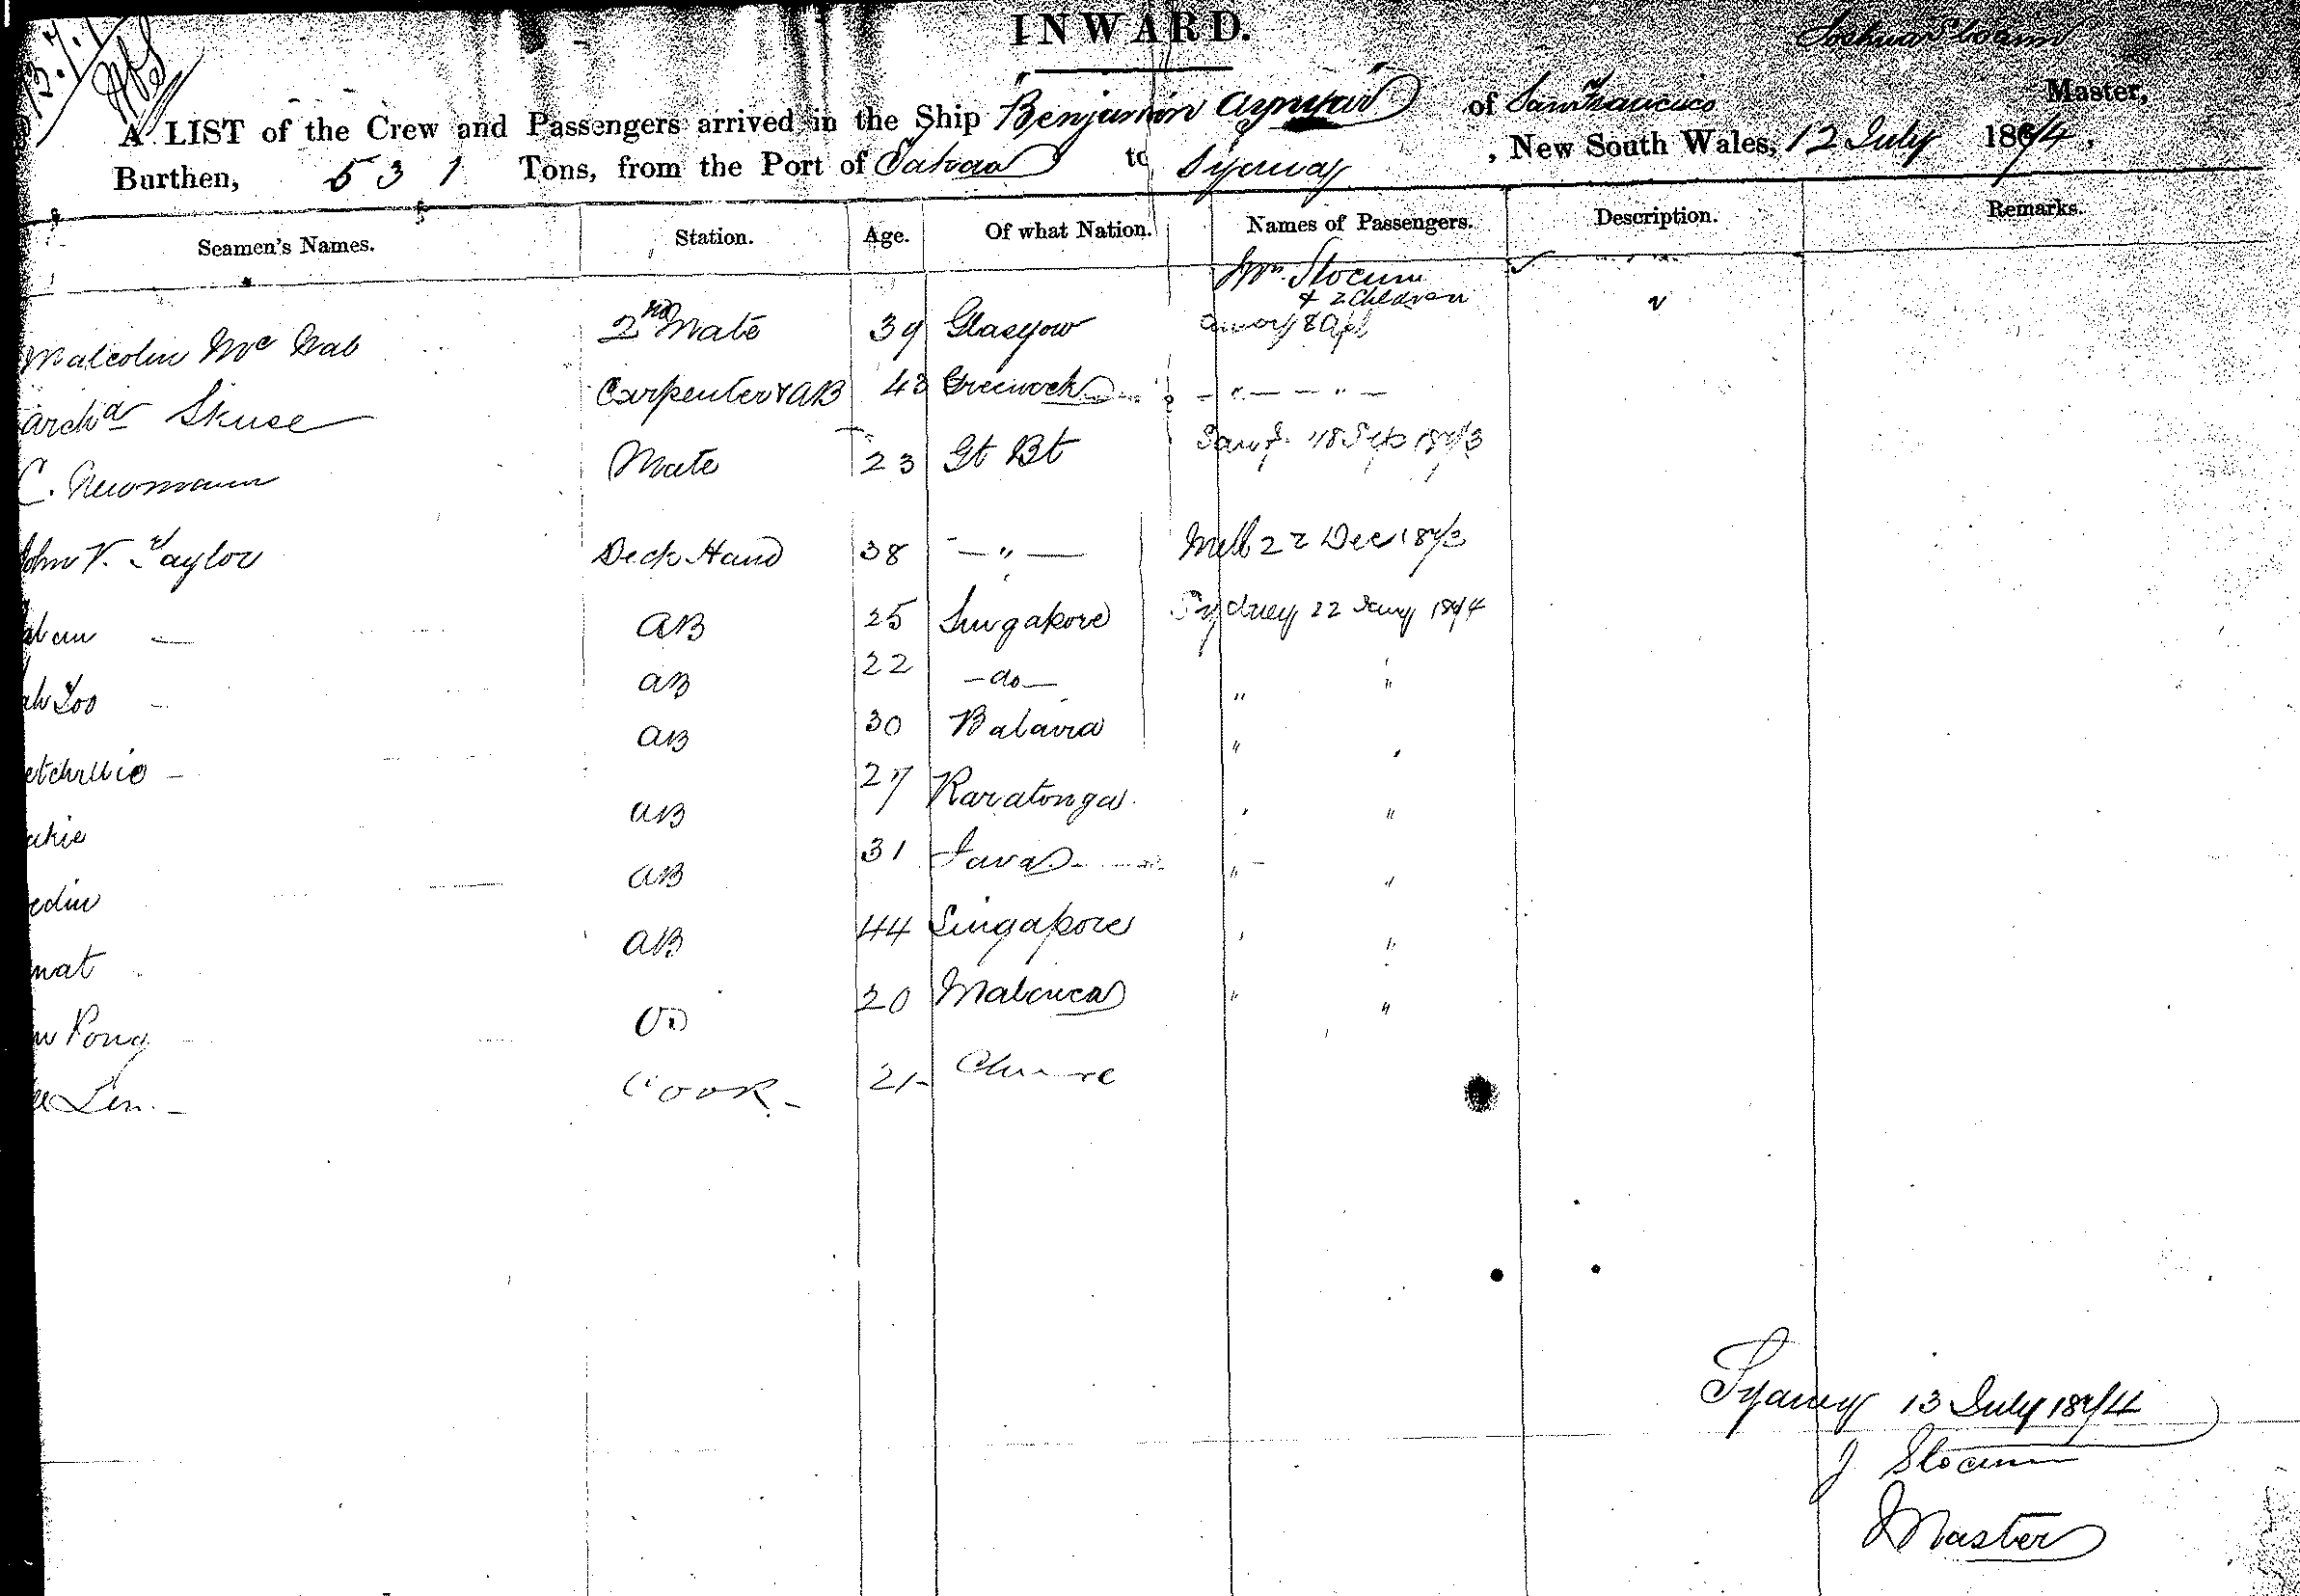 INWARD.
Joshua Slocum
A LIST of the Crew and Passengers arrived in the Ship "Benjamin Aymar" of San Francisco Master,
Burthen, 531 Tons, from the Port of to Sydney, New South Wales, 12 July 1874.
Seamen's Names. Station. Age. Of what Nation. Names of Passengers. Description. Remarks.
Mrs. Slocum
& 2 Children
Malcolm Mc Nab 2nd Mate 39 Glasgow
Archd Skuse Carpenter & AB 43 Greenock — " — — " —
C. Newmann Mate 23 Gt Bt 18 Sep 1873
John V. Taylor Deck Hand 38 — " — Melb 22 Dec 1873
AB 25 Singapore Sydney 22 Jany 1874
AB 22 — do — " "
AB 30 Batavia "
AB 27 Raratonga "
AB 31 Java " "
AB 44 Singapore "
Pong 20 " "
Cook 21
Sydney 13 July 1874
J Slocum
Master